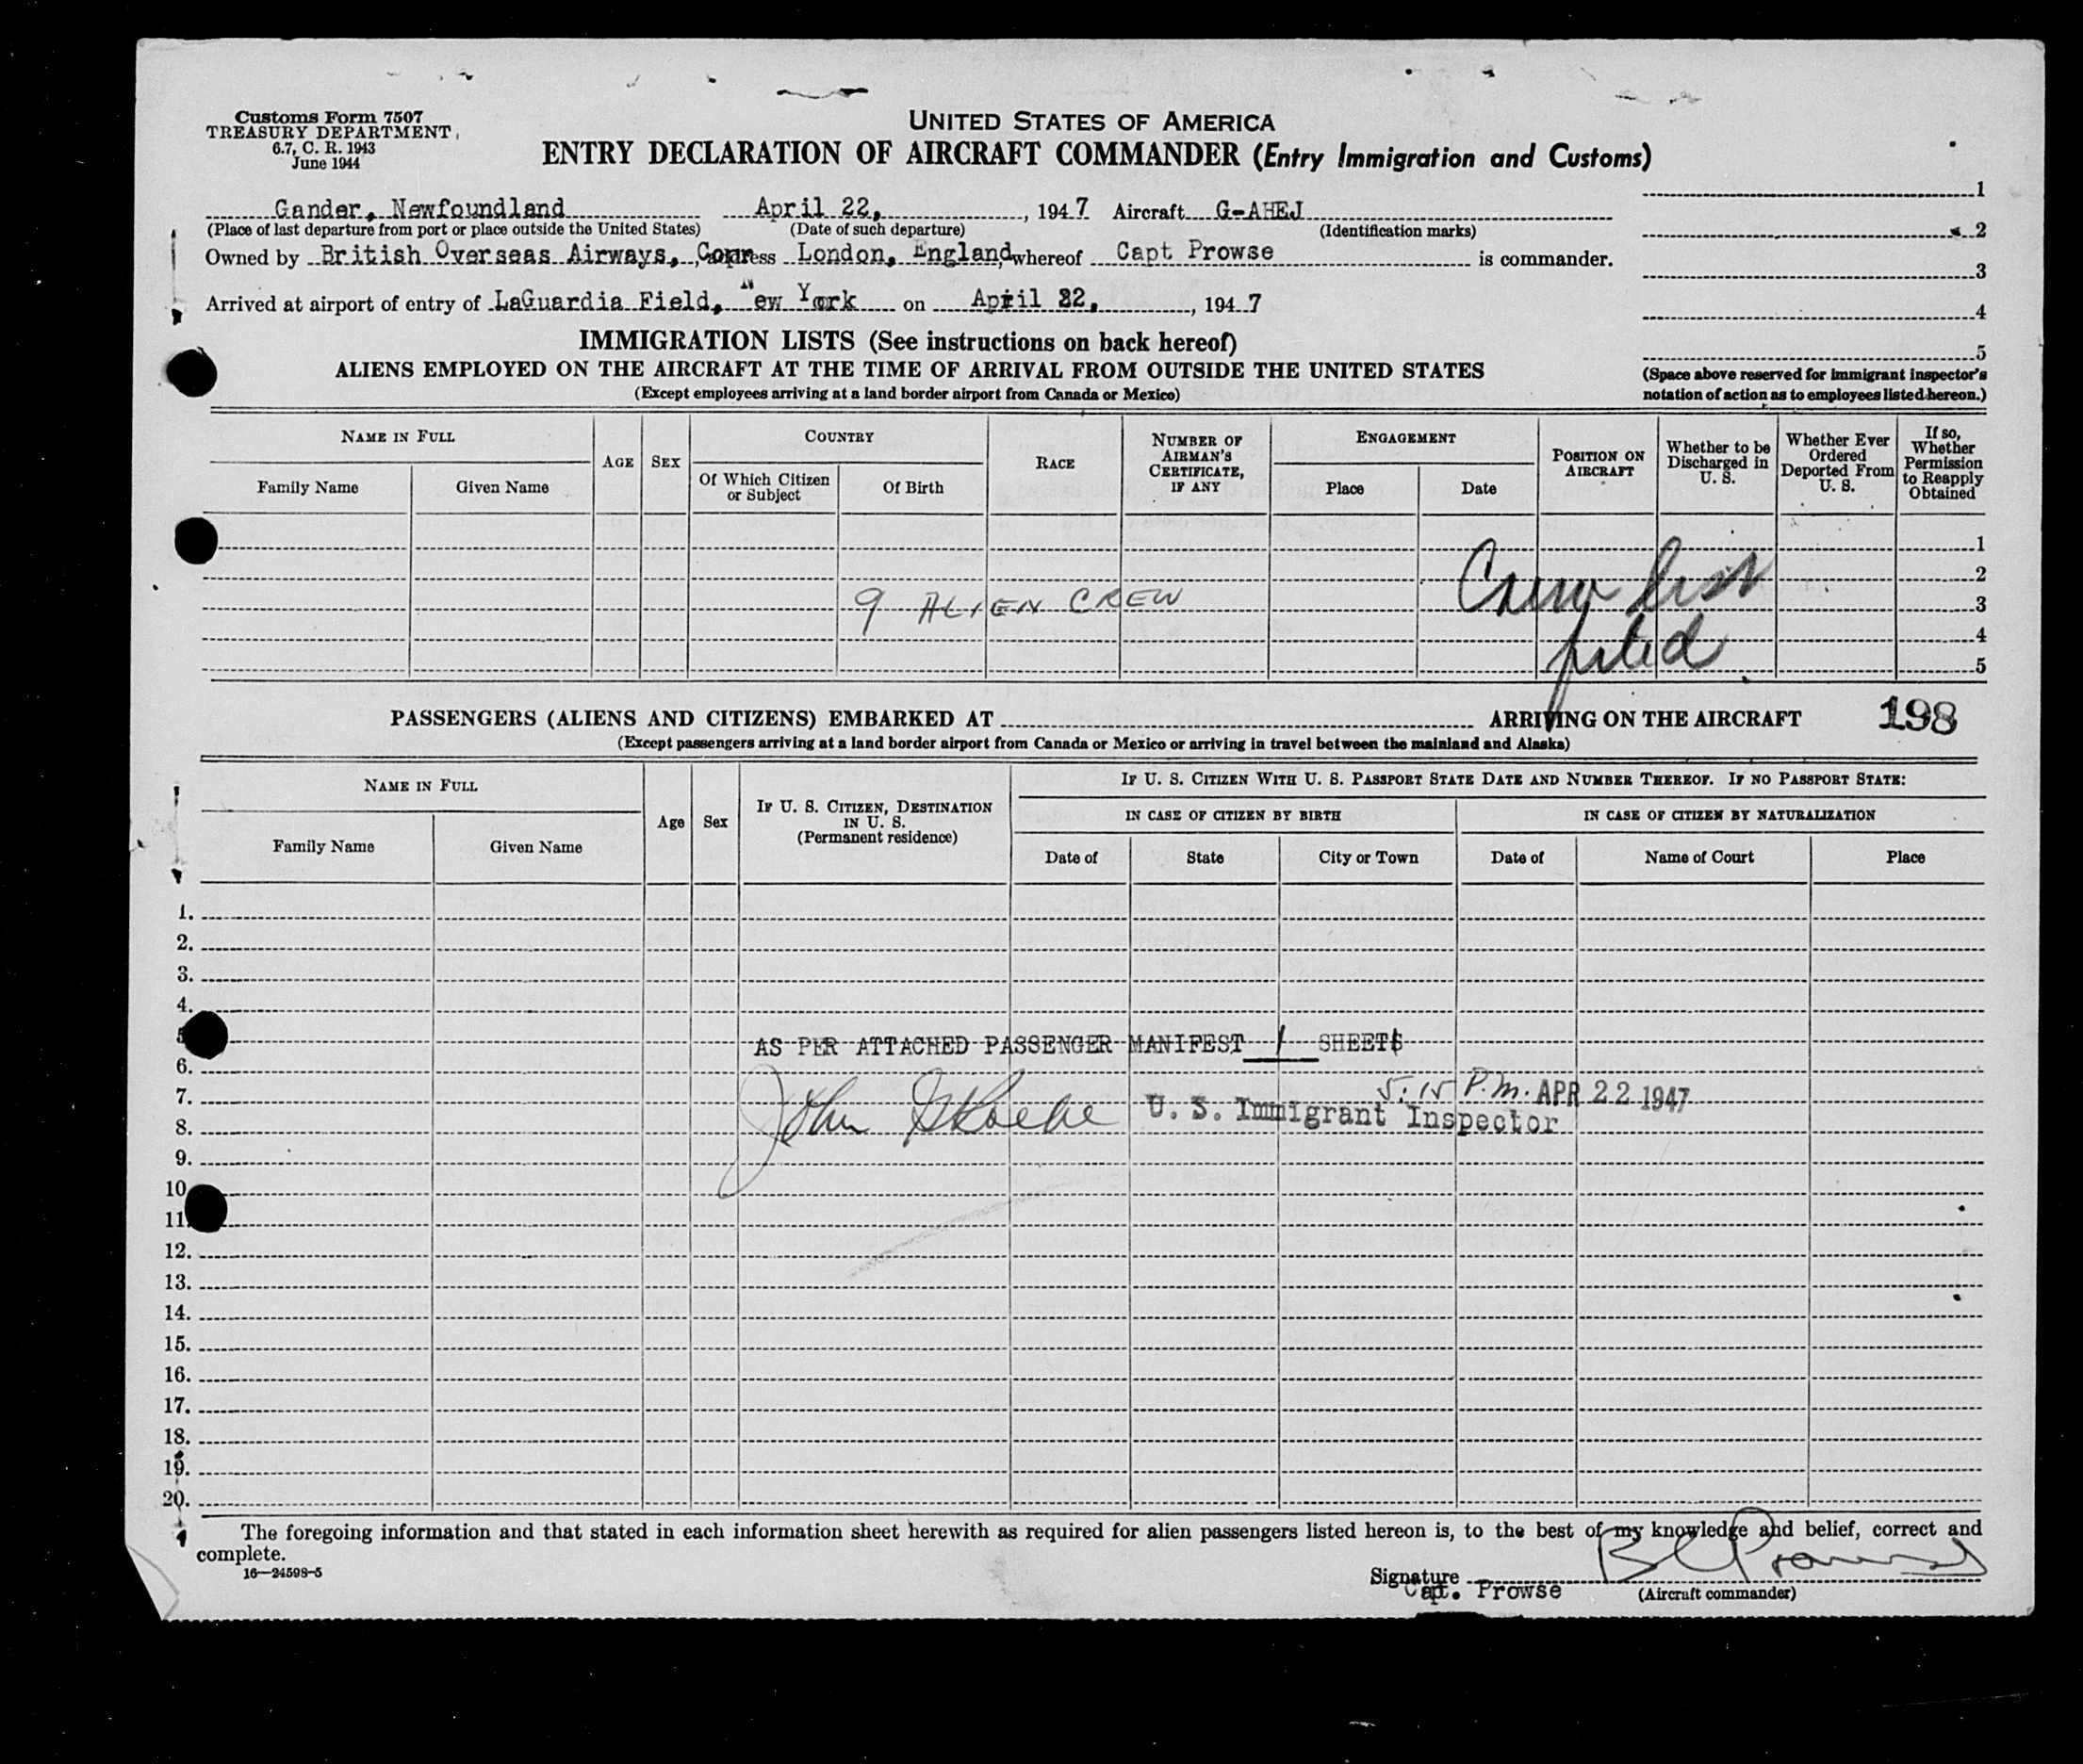 Customs Form 7507
TREASURY DEPARTMENT
6.7, C. R. 1943
June 1944
UNITED STATES OF AMERICA
ENTRY DECLARATION OF AIRCRAFT COMMANDER (Entry Immigration and Customs)
Gander, Newfoundland April 22, , 1947 Aircraft G-AHEJ
(Place of last departure from port or place outside the United States) (Date of such departure) (Identification marks)
Owned by British Overseas Airways, London, England, whereof Capt Prowse is commander.
Arrived at airport of entry of LaGuardia Field, New York on April 22, , 1947
1
2
3
4
5
(Space above reserved for immigrant inspector's
notation of action as to employees listed hereon.)
IMMIGRATION LISTS (See instructions on back hereof)
ALIENS EMPLOYED ON THE AIRCRAFT AT THE TIME OF ARRIVAL FROM OUTSIDE THE UNITED STATES
(Except employees arriving at a land border airport from Canada or Mexico)
NAME IN FULL
Family Name
Given Name
AGE
SEX
COUNTRY
Of Which Citizen
or Subject
Of Birth
RACE
NUMBER OF
AIRMAN'S
CERTIFICATE,
IF ANY
ENGAGEMENT
Place
Date
POSITION ON
AIRCRAFT
Whether to be
Discharged in
U. S.
Whether Ever
Ordered
Deported From
U. S.
If so,
Whether
Permission
to Reapply
Obtained
1
2
3
4
5
9 ALIEN CREW
Crew list
filed
PASSENGERS (ALIENS AND CITIZENS) EMBARKED AT ARRIVING ON THE AIRCRAFT 198
(Except passengers arriving at a land border airport from Canada or Mexico or arriving in travel between the mainland and Alaska)
NAME IN FULL
Family Name
Given Name
Age
Sex
IF U. S. CITIZEN, DESTINATION
IN U. S.
(Permanent residence)
IF U. S. CITIZEN WITH U. S. PASSPORT STATE DATE AND NUMBER THEREOF. IF NO PASSPORT STATE:
IN CASE OF CITIZEN BY BIRTH
Date of
State
City or Town
IN CASE OF CITIZEN BY NATURALIZATION
Date of
Name of Court
Place
1.
2.
3.
4.
5
AS PER ATTACHED PASSENGER MANIFEST 1 SHEETS
6.
7.
5:15 P.M. APR 22 1947
John
U. S. Immigrant Inspector
8.
9.
10
11.
12.
13.
14.
15.
16.
17.
18.
19.
20.
The foregoing information and that stated in each information sheet herewith as required for alien passengers listed hereon is, to the best of my knowledge and belief, correct and
complete.
16—24598-5
Signature B C Prowse
Capt. Prowse
(Aircraft commander)